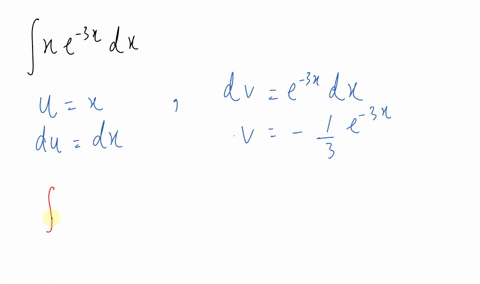 ∫ x e^{-3x} dx
u = x , dv = e^{-3x} dx
du = dx . v = - 1/3 e^{-3x}
∫